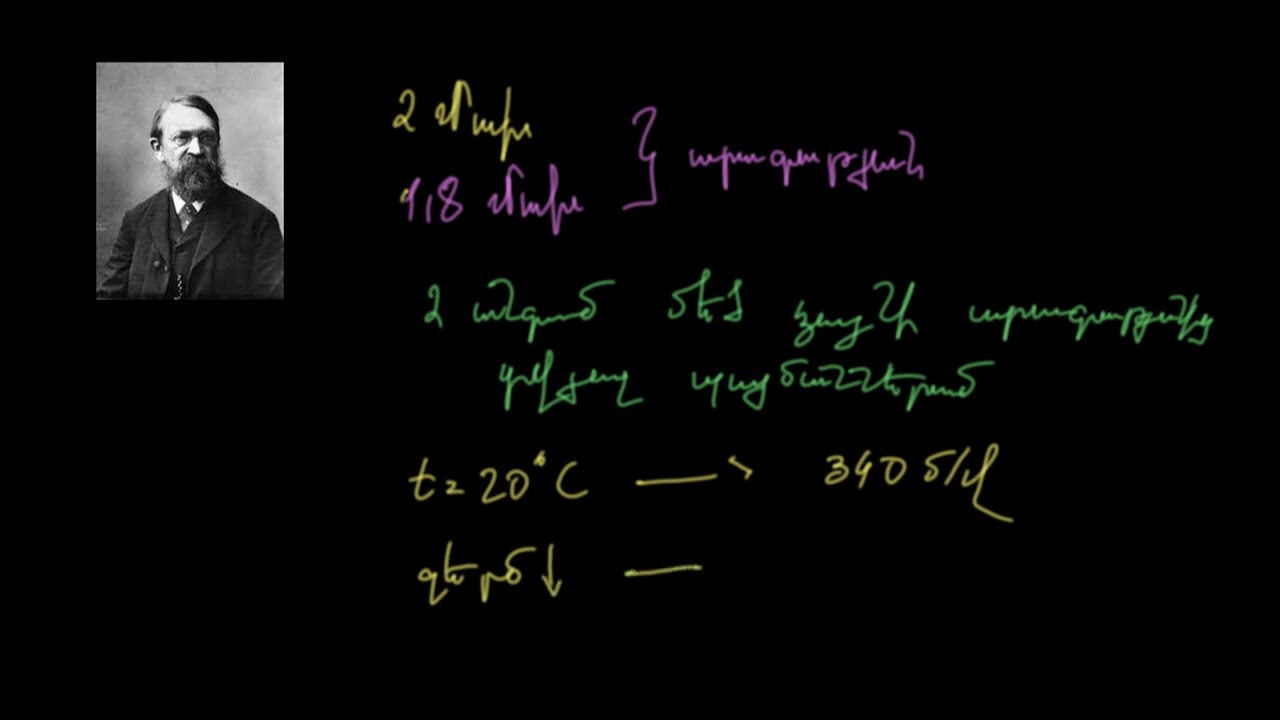 2 մախ
1,8 մախ } արագություն
2 անգամ մեծ ձայնի արագությից
տվյալ պայմաններում
t = 20°C → 340 մ/վ
ջերմ ↓ —